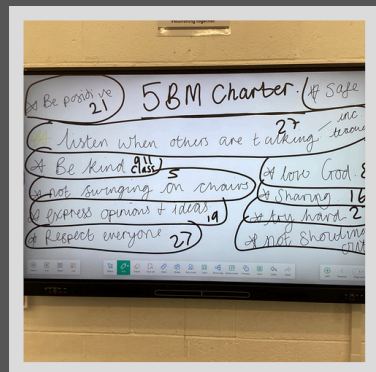 * Be positive 21
5BM Charter.
* Safe
* listen when others are talking 27
inc.
* Be kind all class
* not swinging on chairs 5
* express opinions + ideas 19
* Respect everyone 27
* love God
* Sharing 16
* try hard 2
* not shouting out